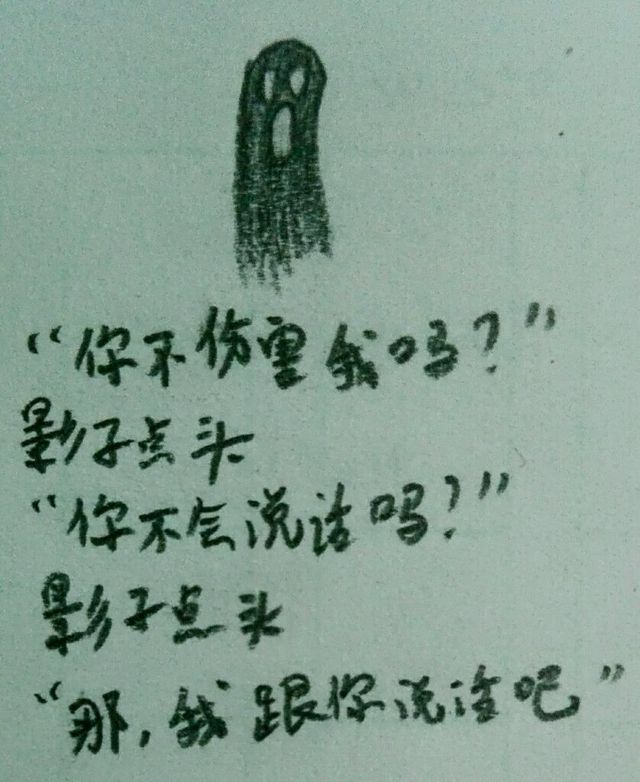 “你不伤害我吗？”
影子点头
“你不会说话吗？”
影子点头
“那，我跟你说话吧”